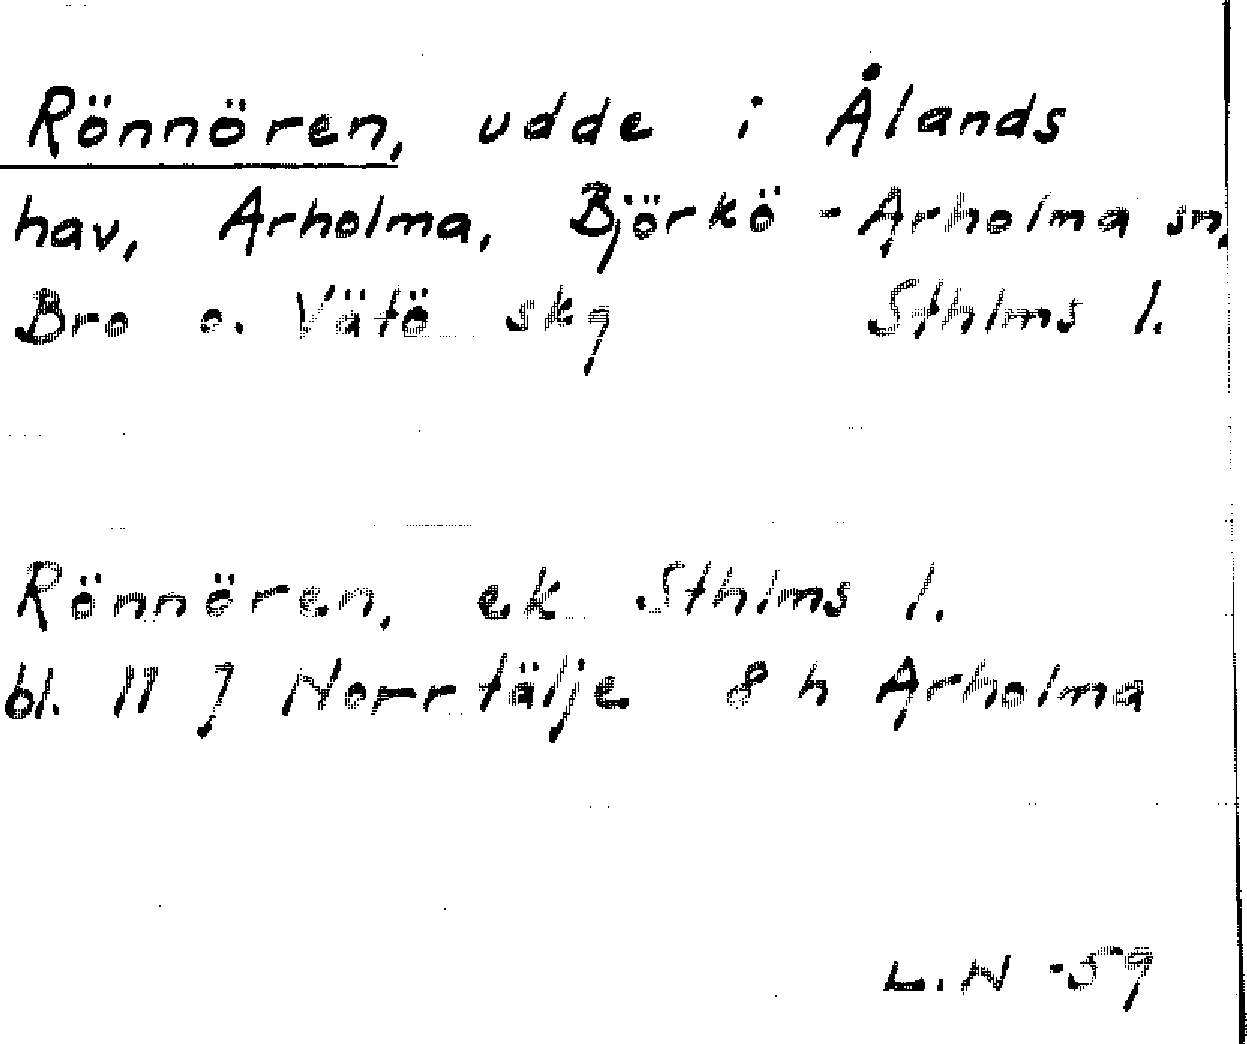 Rönnören, udde i Ålands
hav, Arholma, Björkö-Arholma sn,
Bro o. Vätö skg Sthlms l.
Rönnören, ek Sthlms l.
bl. 11 J Norrtälje 8 h Arholma
L.N -59